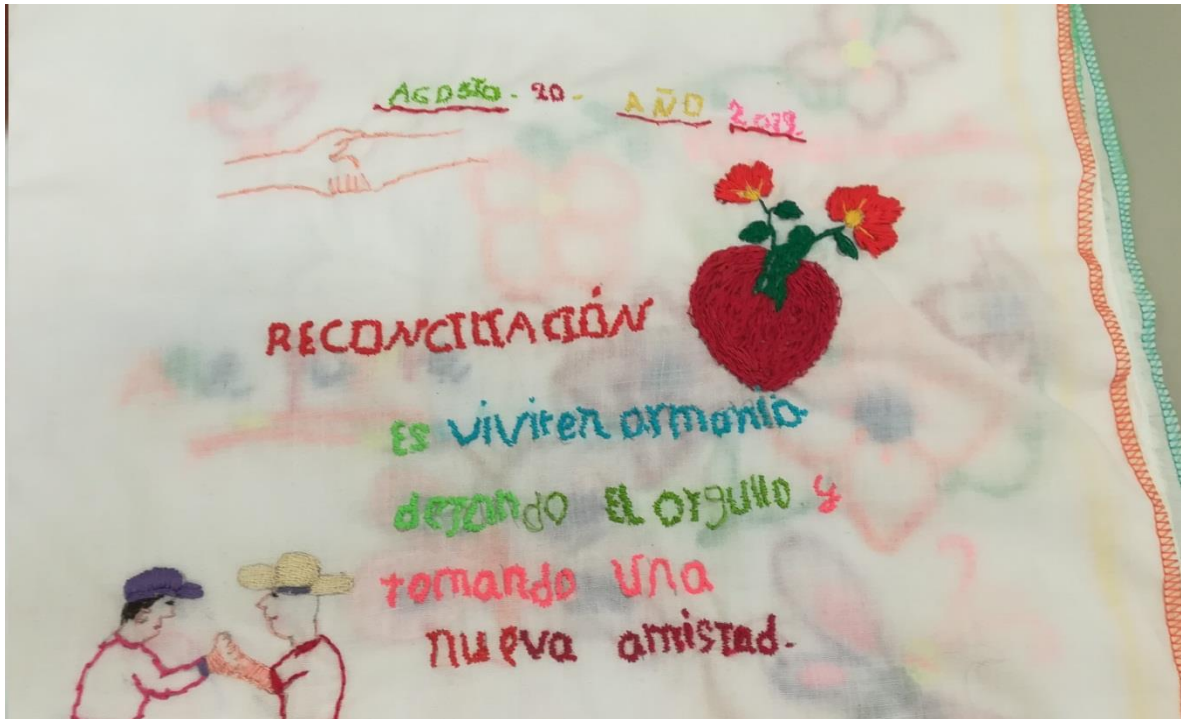 AGOSTO - 20 - AÑO
RECONCILIACIÓN
Es vivir en armonia
dejando EL orgullo y
tomando una
nueva amistad.